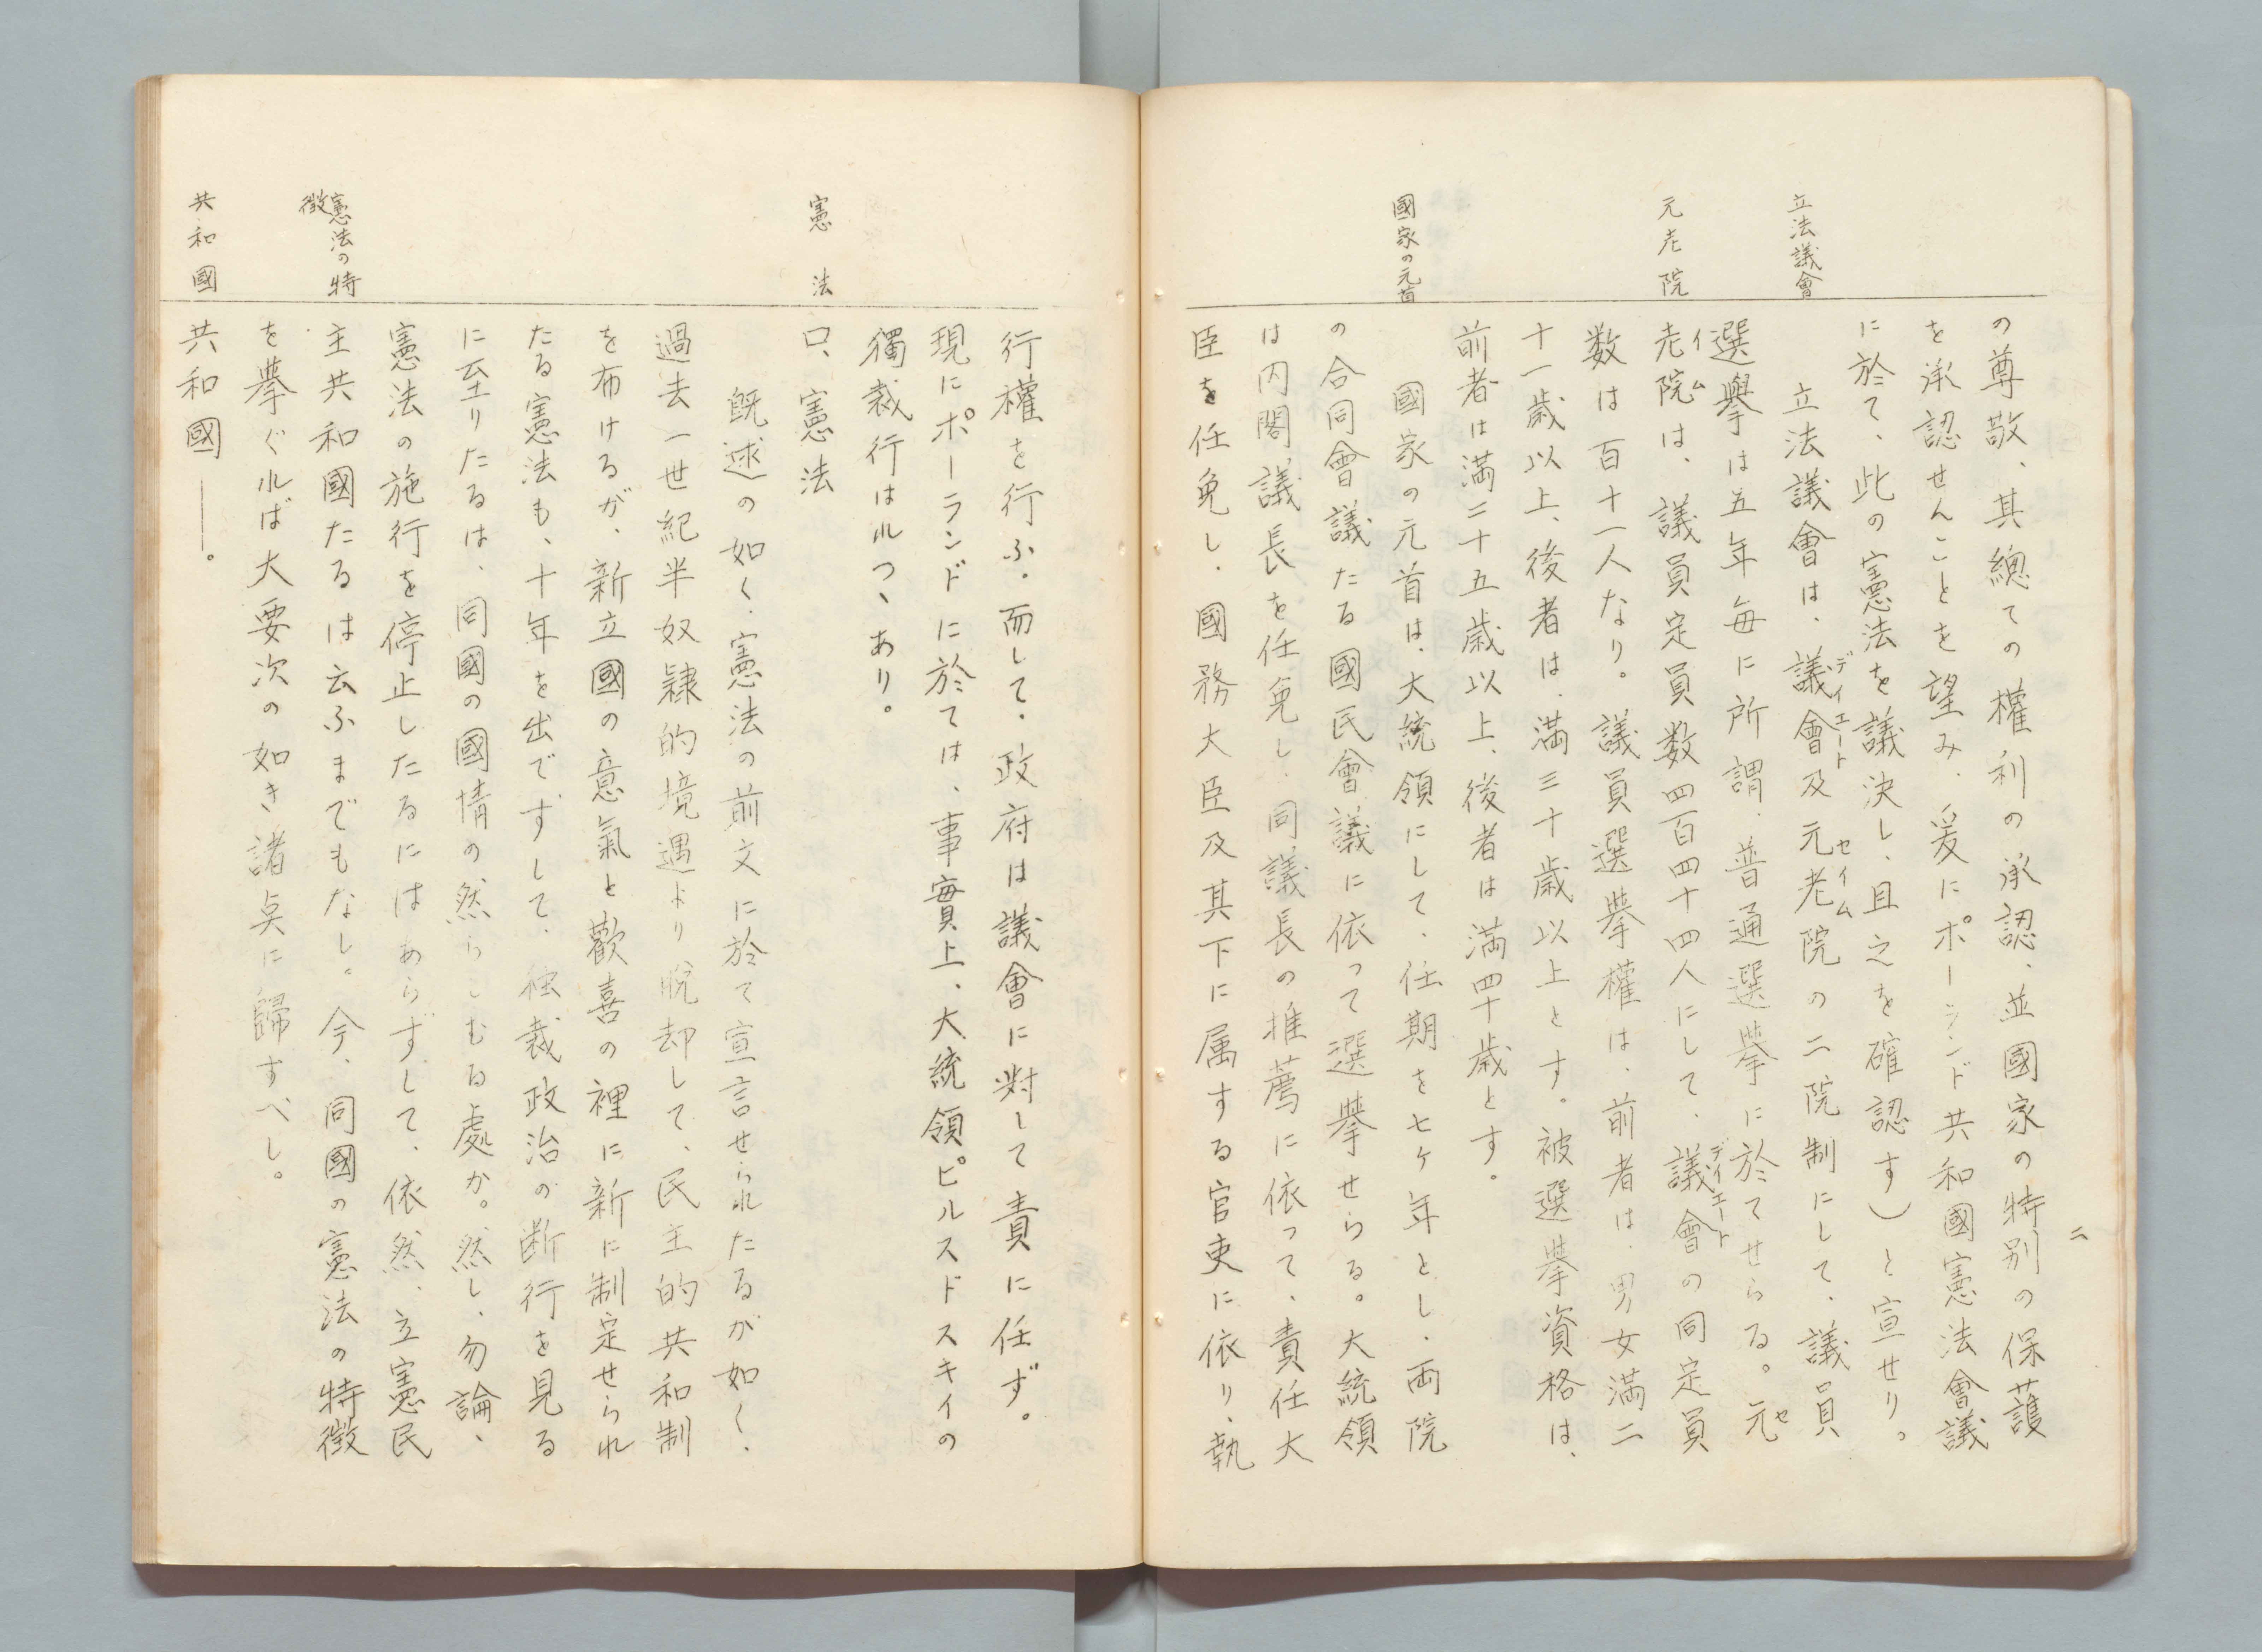 二
の尊敬、其總ての權利の承認、並國家の特別の保護
を承認せんことを望み、爰にポーランド共和國憲法會議
に於て、此の憲法を議決し、且之を確認す）と宣せり。
立法議會
立法議會は、議會及元老院の二院制にして、議員
ディエート
セイム
選擧は五年每に所謂、普通選擧に於てせらる。元
セ
元老院
老院は、議員定員数四百四十四人にして、議會の同定員
イム
ディエート
数は百十一人なり。議員選擧權は、前者は、男女満二
十一歳以上、後者は、満三十歳以上とす。被選擧資格は、
前者は満二十五歳以上、後者は満四十歳とす。
國家の元首
國家の元首は、大統領にして、任期を七ケ年とし、両院
の合同會議たる國民會議に依って選擧せらる。大統領
は内閣議長を任免し、同議長の推薦に依って、責任大
臣を任免し、國務大臣及其下に属する官吏に依り、執
行權を行ふ。而して、政府は議會に対して責に任ず。
現にポーランドに於ては、事實上、大統領ピルスドスキイの
獨裁行はれつゝあり。
憲法
口、憲法
既述の如く、憲法の前文に於て宣言せられたるが如く、
過去一世紀半奴隷的境遇より脱却して、民主的共和制
を布けるが、新立國の意氣と歡喜の裡に新に制定せられ
たる憲法も、十年を出でずして、独裁政治の断行を見る
に至りたるは、同國の國情の然らしむる處か。然し、勿論、
憲法の施行を停止したるにはあらずして、依然、立憲民
憲法の特徴
主共和國たるは云ふまでもなし。今、同國の憲法の特徴
を擧ぐれば大要次の如き諸点に歸すべし。
共和國
共和國――。